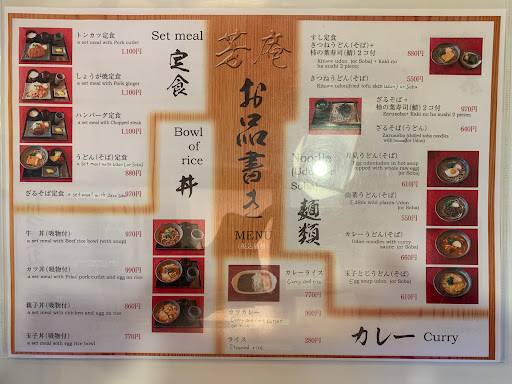 芳庵
お品書き
MENU
(税込価格)
Set meal
定食
トンカツ定食
a set meal with Pork cutlet
1,100円
しょうが焼定食
a set meal with Pork ginger
1,100円
ハンバーグ定食
a set meal with Chopped steak
1,100円
うどん(そば)定食
880円
ざるそば定食
970円
Bowl of rice
丼
牛丼(吸物付)
970円
a set meal with Beef rice bowl (with soup)
カツ丼(吸物付)
990円
a set meal with Fried pork cutlet and egg on rice
親子丼(吸物付)
860円
a set meal with chicken and egg on rice
玉子丼(吸物付)
770円
a set meal with egg rice bowl
Noodle
(Udon
Soba)
麺類
すし定食
きつねうどん(そば)+
柿の葉寿司(鯖)2コ付
880円
Kitsune udon (or Soba) + Kaki no ha sushi 2 pieces
きつねうどん(そば)
550円
ざるそば+
柿の葉寿司(鯖)2コ付
970円
Zarusoba+ Kaki no ha sushi 2 pieces
ざるそば(うどん)
640円
月見うどん(そば)
610円
山菜うどん(そば)
Edible wild plants Udon (or Soba)
550円
カレーうどん(そば)
Udon noodles with curry sauce (or Soba)
660円
玉子とじうどん(そば)
Egg soup udon (or Soba)
610円
カレーライス
Curry and rice
770円
カツカレー
990円
ライス
Steamed rice
280円
カレー Curry